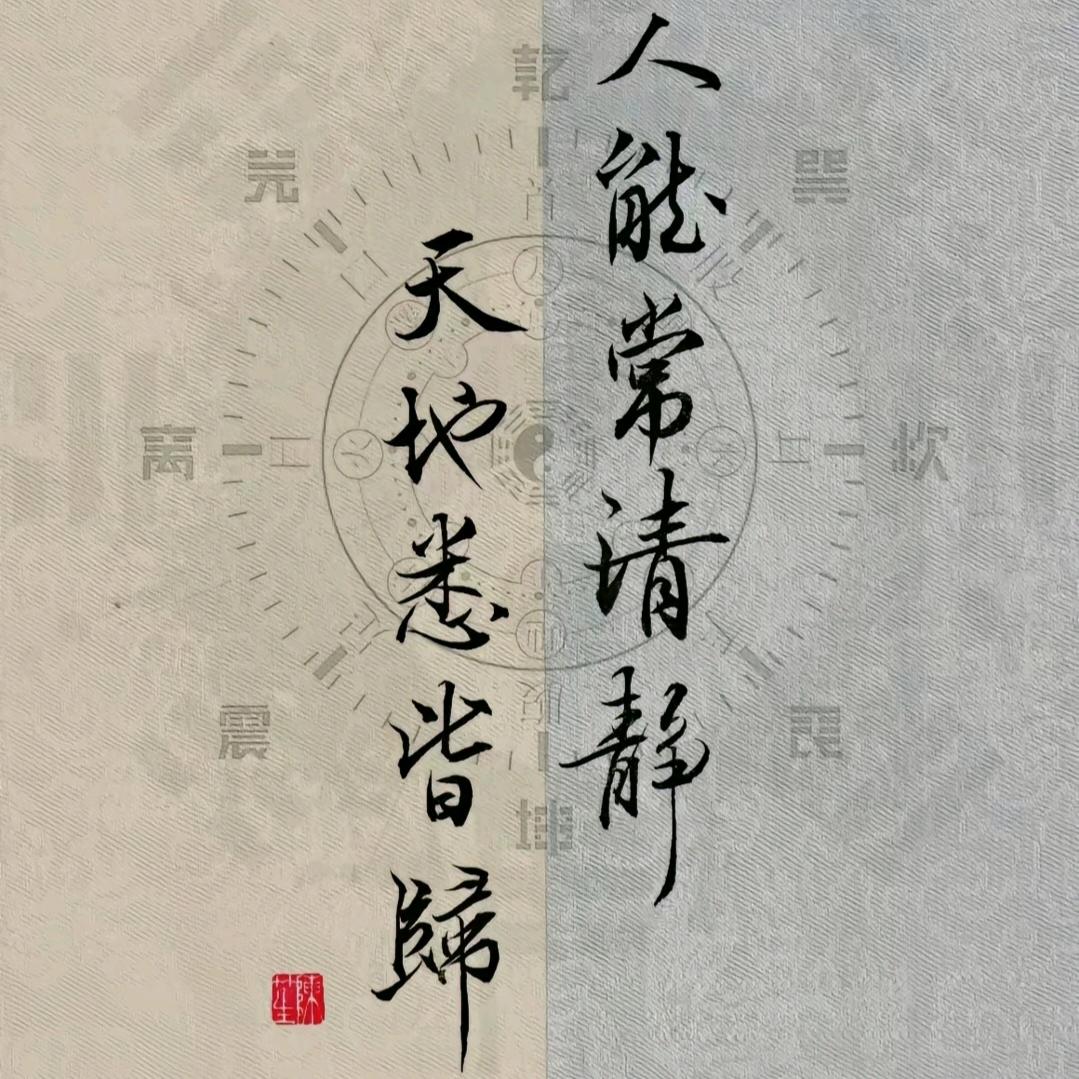 人能常清静
天地悉皆歸
乾
兑
巽
离
坎
震
艮
坤
火
陳